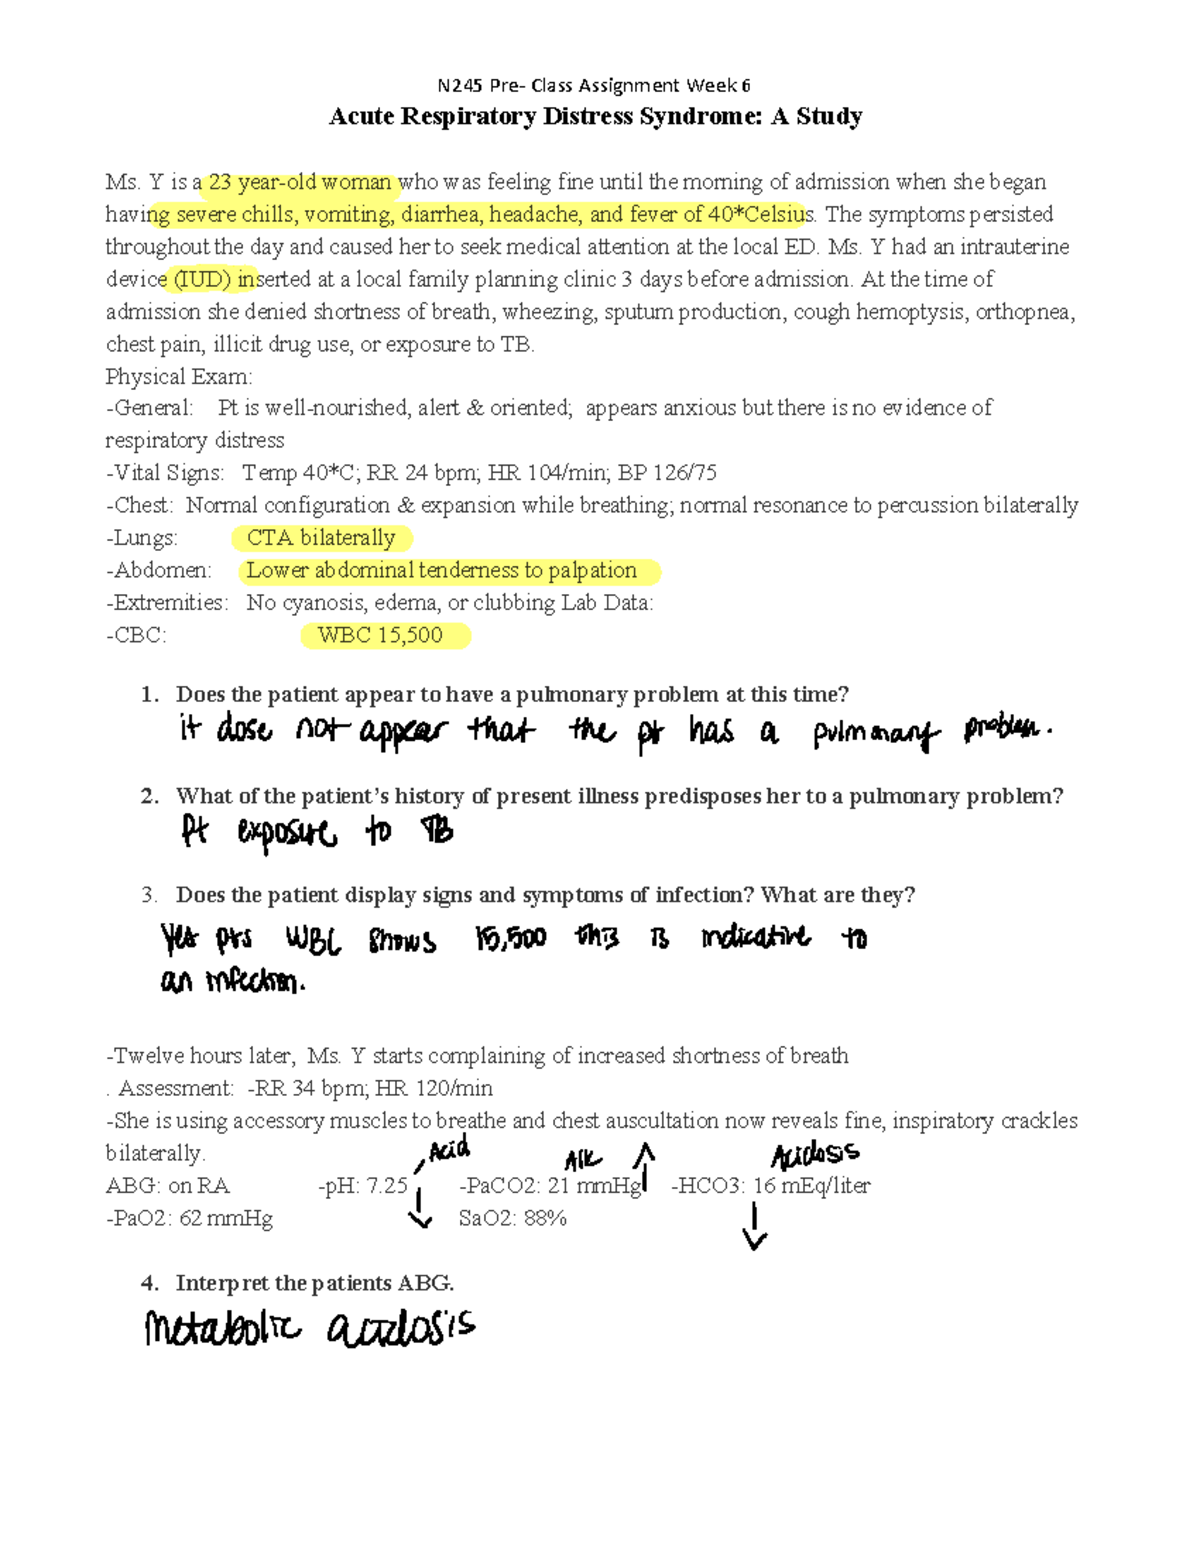 N245 Pre- Class Assignment Week 6
Acute Respiratory Distress Syndrome: A Study
Ms. Y is a 23 year-old woman who was feeling fine until the morning of admission when she began
having severe chills, vomiting, diarrhea, headache, and fever of 40*Celsius. The symptoms persisted
throughout the day and caused her to seek medical attention at the local ED. Ms. Y had an intrauterine
device (IUD) inserted at a local family planning clinic 3 days before admission. At the time of
admission she denied shortness of breath, wheezing, sputum production, cough hemoptysis, orthopnea,
chest pain, illicit drug use, or exposure to TB.
Physical Exam:
-General: Pt is well-nourished, alert & oriented; appears anxious but there is no evidence of
respiratory distress
-Vital Signs: Temp 40*C; RR 24 bpm; HR 104/min; BP 126/75
-Chest: Normal configuration & expansion while breathing; normal resonance to percussion bilaterally
-Lungs: CTA bilaterally
-Abdomen: Lower abdominal tenderness to palpation
-Extremities: No cyanosis, edema, or clubbing Lab Data:
-CBC: WBC 15,500
1. Does the patient appear to have a pulmonary problem at this time?
it dose not appear that the pt has a pulmonary problem.
2. What of the patient's history of present illness predisposes her to a pulmonary problem?
Pt exposure to TB
3. Does the patient display signs and symptoms of infection? What are they?
Yes pts WBC shows 15,500 this is indicative to
an infection.
-Twelve hours later, Ms. Y starts complaining of increased shortness of breath
. Assessment: -RR 34 bpm; HR 120/min
-She is using accessory muscles to breathe and chest auscultation now reveals fine, inspiratory crackles
bilaterally.
Acid Alk ↑ Acidosis
ABG: on RA -pH: 7.25 -PaCO2: 21 mmHg -HCO3: 16 mEq/liter
-PaO2: 62 mmHg ↓ SaO2: 88% ↓
4. Interpret the patients ABG.
metabolic acidosis